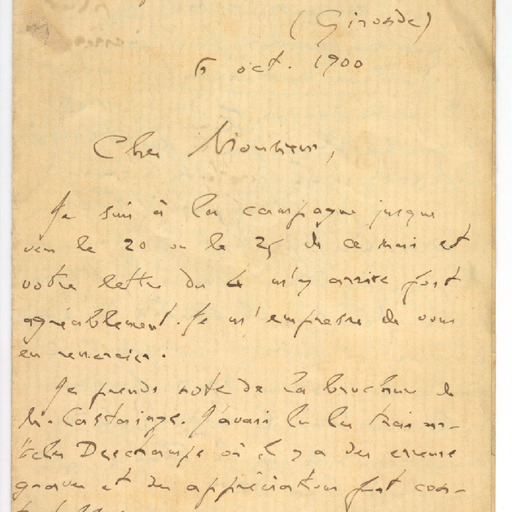 (Gironde)
6 oct. 1900
Cher Monsieur,
Je suis à la campagne jusque
vers le 20 ou le 25 de ce mois et
votre lettre du 4 m'y arrive fort
agréablement. Je m'empresse de vous
en remercier.
Je prends note de la brochure de
M. Castaigne. J'avais lu les trois ar-
ticles Deschamps où il y a des erreurs
graves et des appréciations fort con-